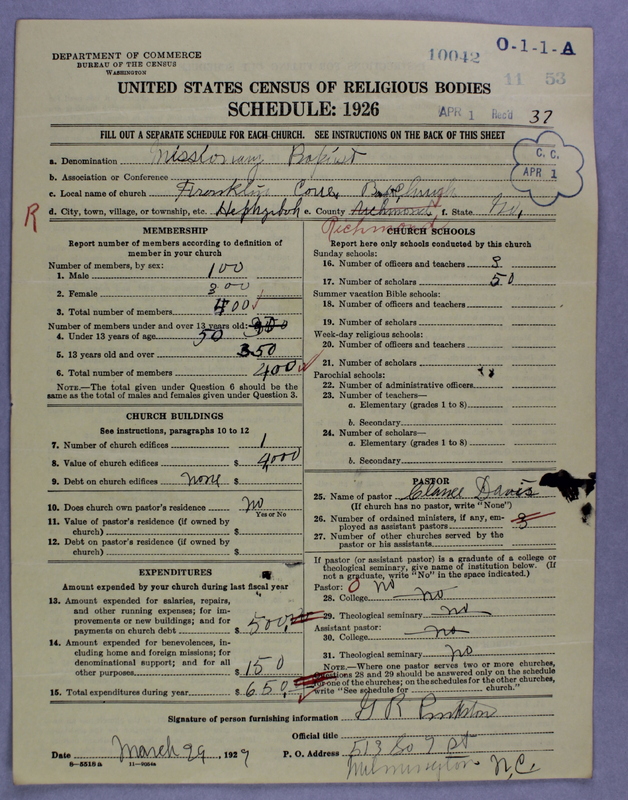 DEPARTMENT OF COMMERCE
BUREAU OF THE CENSUS
WASHINGTON
10042
O-1-1-A
11 53
UNITED STATES CENSUS OF RELIGIOUS BODIES
SCHEDULE: 1926
APR 1 Rec'd 37
FILL OUT A SEPARATE SCHEDULE FOR EACH CHURCH. SEE INSTRUCTIONS ON THE BACK OF THIS SHEET
C. C.
APR 1
a. Denomination Missionary Baptist
b. Association or Conference
c. Local name of church Franklin Cove
R d. City, town, village, or township, etc. Hephzibah e. County Richmond f. State
Richmond
MEMBERSHIP
Report number of members according to definition of member in your church
Number of members, by sex:
1. Male 100
2. Female 300
3. Total number of members 400
Number of members under and over 13 years old:
4. Under 13 years of age 50
5. 13 years old and over 350
6. Total number of members 400
NOTE.—The total given under Question 6 should be the
same as the total of males and females given under Question 3.
CHURCH BUILDINGS
See instructions, paragraphs 10 to 12
7. Number of church edifices 1
8. Value of church edifices $ 4,000
9. Debt on church edifices none $
10. Does church own pastor's residence no
Yes or No
11. Value of pastor's residence (if owned by
church) $
12. Debt on pastor's residence (if owned by
church) $
EXPENDITURES
Amount expended by your church during last fiscal year
13. Amount expended for salaries, repairs,
and other running expenses; for im-
provements or new buildings; and for
payments on church debt $ 500
14. Amount expended for benevolences, in-
cluding home and foreign missions; for
denominational support; and for all
other purposes $ 150
15. Total expenditures during year $ 650
CHURCH SCHOOLS
Report here only schools conducted by this church
Sunday schools:
16. Number of officers and teachers 3
17. Number of scholars 50
Summer vacation Bible schools:
18. Number of officers and teachers
19. Number of scholars
Week-day religious schools:
20. Number of officers and teachers
21. Number of scholars
Parochial schools:
22. Number of administrative officers
23. Number of teachers—
a. Elementary (grades 1 to 8)
b. Secondary
24. Number of scholars—
a. Elementary (grades 1 to 8)
b. Secondary
PASTOR
25. Name of pastor Davis
(If church has no pastor, write "None")
26. Number of ordained ministers, if any, em-
ployed as assistant pastors 3
27. Number of other churches served by the
pastor or his assistants
If pastor (or assistant pastor) is a graduate of a college or
theological seminary, give name of institution below. (If
not a graduate, write "No" in the space indicated.)
Pastor: O No
28. College no
29. Theological seminary no
Assistant pastor:
30. College no
31. Theological seminary no
NOTE.—Where one pastor serves two or more churches,
questions 28 and 29 should be answered only on the schedule
for one of the churches; on the schedules for the other churches,
write "See schedule for church."
Signature of person furnishing information G R
Official title
Date March 29, 1927 P. O. Address 513 So 7 St
8-5518a 11-9264a Wilmington N.C.